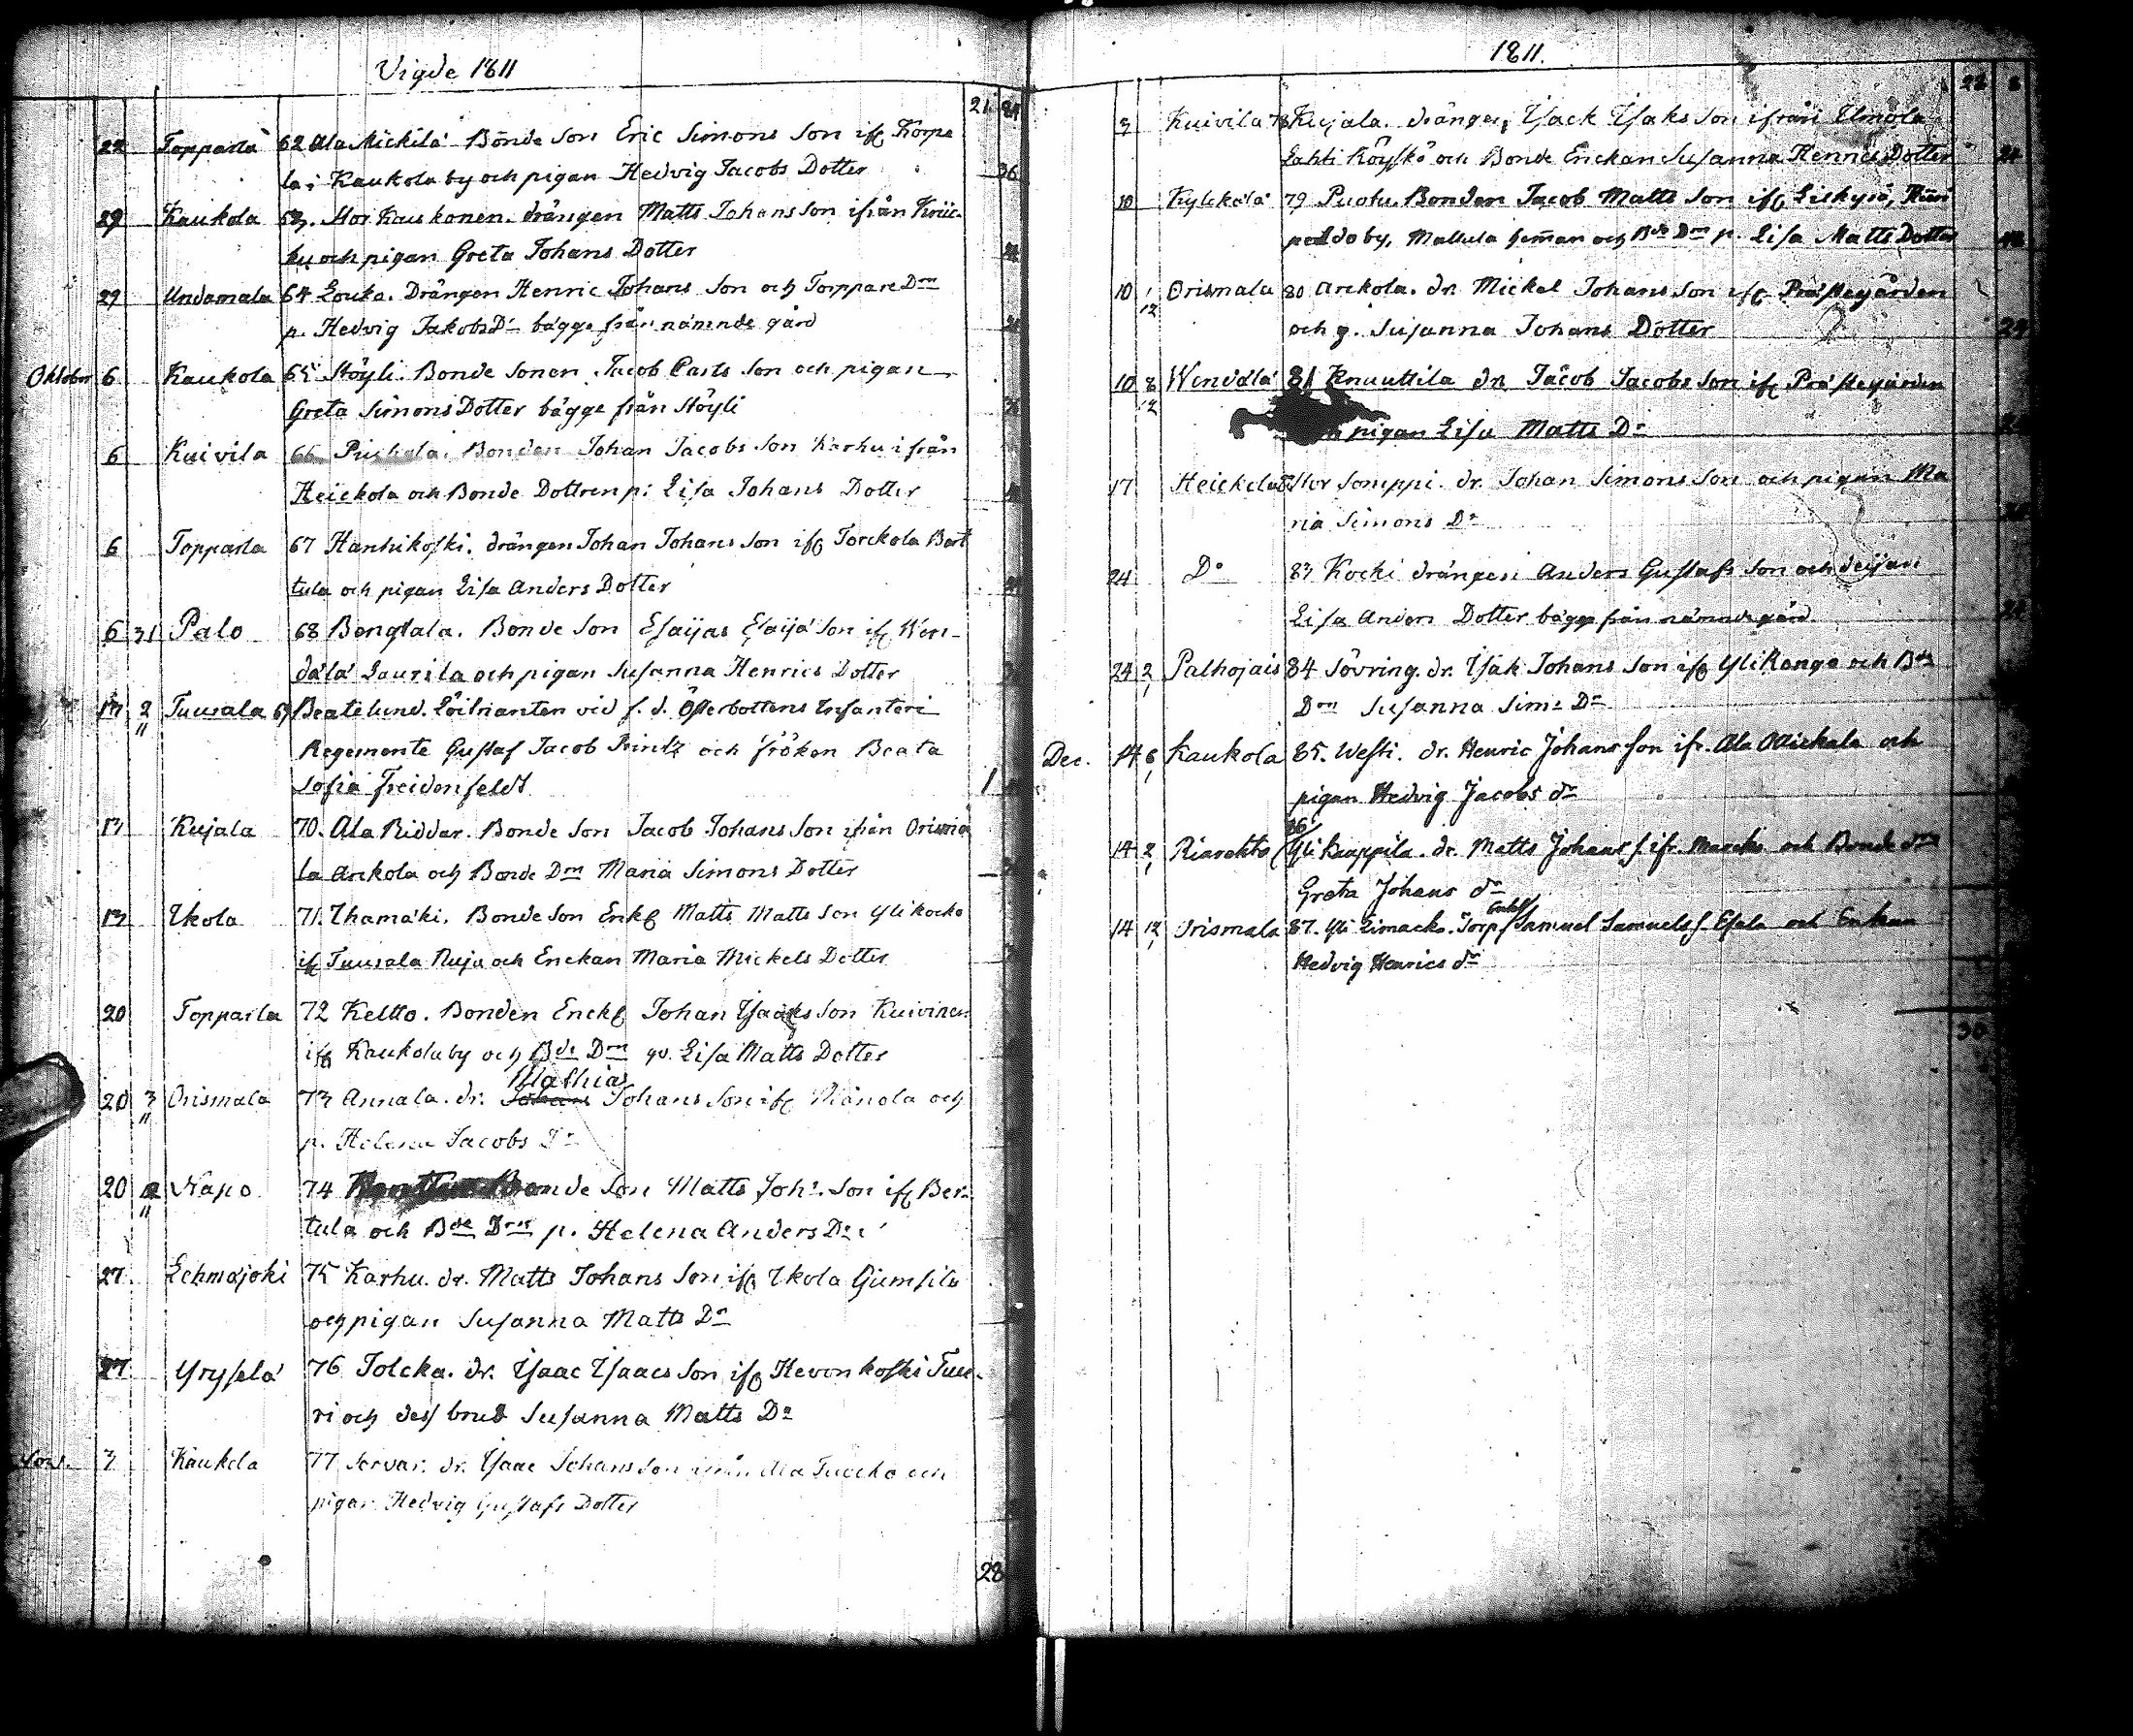 Vigde 1811
21 24
22 Topparla 62 Ala Mickilä Bonde Son Eric Simons Son ifr Korpe
la i Kaukola by och pigan Hedvig Jacobs Dotter 36
29 Kaukola 63. Stor Kauskonen. drängen Matts Johans Son ifrån Kriic
ku och pigan Greta Johans Dotter 24
29 Undamala 64 Louko. Drängen Henric Johans Son och Torppare Drn
p. Hedvig Jakobs Dr bägge från nämnde gård
Oktober 6 Kaukola 65 Höyli. Bonde Sonen Jacob Carls Son och pigan
Greta Simons Dotter bägge från Höyli
6 Kuivila 66 Bonden Johan Jacobs Son Karhu ifrån
Heickola och Bonde Dottren p: Lisa Johans Dotter
6 Topparla 67 Hanhikoski. drängen Johan Johans Son ifr Torckola Bert
tula och pigan Lisa Anders Dotter
6 31 Palo 68 Bengtala. Bonde Son Esaijas Esaija Son ifr Wen-
dälä Laurila och pigan Susanna Henrics Dotter
13 2/11 Tuurala 69 Beatelund. Löitnanten vid f. d. Österbottens Infanteri
Regemente Gustaf Jacob Printz och fröken Beata
Sofia Freidenfeldt 1
13 Kujala 70. Ala Riddar. Bonde Son Jacob Johans Son ifrån Orisma
la Arckola och Bonde Drn Maria Simons Dotter
13 Ikola 71. Ihamäki. Bonde Son Enkl Matts Matts Son Ylikocko
ifr Tuurala Ruju och Enckan Maria Mickels Dotter
20 Topparla 72 Keltto. Bonden Enckl Johan Isaaks Son Kuivinen
ifr Kaukola by och Bde Drn qv. Lisa Matts Dotter
Mathias
20 3/11 Orismala 73 Annala. dr. Johans Johans Son ifr Riänola och
p. Helena Jacobs Dr
20 12/11 Napo 74 Bonde Son Matts Johs. Son ifr Ber-
tula och Bde Drn p. Helena Anders Dr
27 Lehmäjoki 75 Karhu. dr. Matts Johans Son ifr Ikola Gumsila
och pigan Susanna Matts Dr
27 Yrysselä 76 Tolcka. dr. Isaac Isaacs Son ifr Hevonkoski Tuu-
ri och dess brud Susanna Matts Dr
3 Kaukola 77 Servar. dr. Isaac Johans Son ifrån Ala Tuocko och
pigan Hedvig Gustafs Dotter
28
1811.
3 Kuivila 78 Kujala. drängen Isack Isaks Son ifrån Ilmola
Lahti Röyskö och Bonde Enckan Susanna Henrics Dotter 24
10 Kylckälä 79 Puotu. Bonden Jacob Matts Son ifr Lilkyro,
by, Mattula hemman och Bde Drn p. Lisa Matts Dotter
10 1/12 Orismala 80 Arckola. dr. Mickel Johans Son ifr Prästegården
och q. Susanna Johans Dotter 24
10 8/12 Wendälä 81 Knuuttila dr. Jacob Jacobs Son ifr Prästegården
pigan Lisa Matts Dr
17 Heickola 82 Stor Sonippi. dr. Johan Simons Son och pigan Ma
ria Simons Dr
24 Do 83 Kocki drängen Anders Gustafs Son och deijan
Lisa Anders Dotter bägge från nämnde gård
24 2 Palhojais 84 Sövring. dr. Isak Johans Son ifr Yli Kango och Bde
Drn Susanna Sims Dr
Dec. 14 6 Kaukola 85. Westi. dr. Henric Johans Son ifr. Ala Mickala och
pigan Hedvig Jacobs dr
14 2 Riarehto 86. Yli Kauppila. dr. Matts Johans s. ifr. Marcko och Bonde drn
Greta Johans dr
14 12 Orismala 87. Yli Limacko. Torp. Enkl. Samuel Samuels s. Esela och Enkan
Hedvig Henrics dr
30